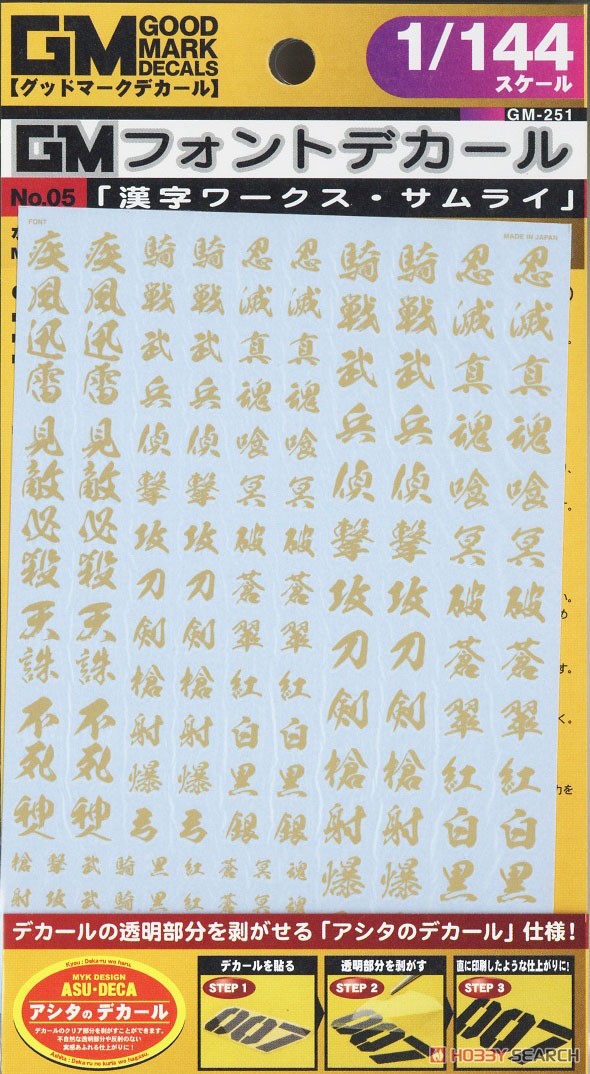 GM
GOOD
MARK
DECALS
【グッドマークデカール】
1/144
スケール
GM-251
GMフォントデカール
No.05「漢字ワークス・サムライ」
FONT
MADE IN JAPAN
疾風迅雷見敵必殺天誅不死神
疾風迅雷見敵必殺天誅不死神
騎戦武兵偵撃攻刀剣槍射爆弓
騎戦武兵偵撃攻刀剣槍射爆弓
忍滅真魂喰冥破蒼翠紅白黒銀
忍滅真魂喰冥破蒼翠紅白黒銀
騎戦武兵偵撃攻刀剣槍射爆
騎戦武兵偵撃攻刀剣槍射爆
忍滅真魂喰冥破蒼翠紅白黒
忍滅真魂喰冥破蒼翠紅白黒
槍 撃 武 騎 黒 紅 蒼 冥 魂
射 攻 武 騎 黒 紅 蒼 冥 魂
デカールの透明部分を剥がせる「アシタのデカール」仕様!
Kyou : Deka-ru wo haru
MYK DESIGN
ASU・DECA
アシタのデカール
デカールのクリア部分を剥がすことができます。
不自然な透明部分や反射のない
実感あふれる仕上がりに!
Ashita : Deka-ru no kuria wo hagasu.
デカールを貼る
STEP 1
007
透明部分を剥がす
STEP 2
007
直に印刷したような仕上がりに!
STEP 3
007
HOBBY SEARCH